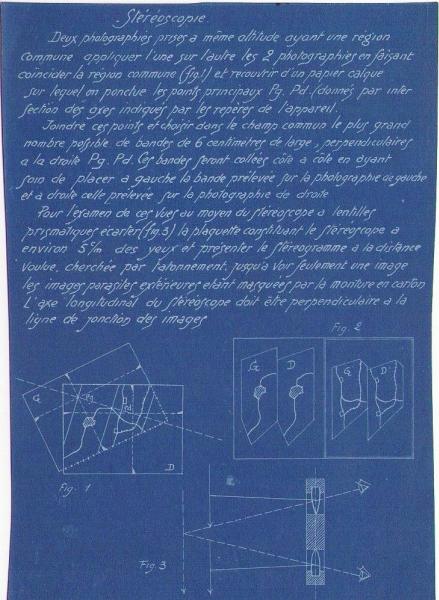 Stéréoscopie.
Deux photographies prises a même altitude ayant une région
commune appliquer l'une sur l'autre les 2 photographies en faisant
coïncider la région commune (fig.1) et recouvrir d'un papier calque
sur lequel on ponctue les points principaux Pg. Pd. (donnés par inter
section des axes indiqués par les repères de l'appareil.
Joindre ces points et choisir dans le champ commun le plus grand
nombre possible de bandes de 6 centimètres de large, perpendiculaires
a la droite Pg. Pd. Ces bandes seront collées côte a côte en ayant
soin de placer a gauche la bande prélevée sur la photographie de gauche
et a droite celle prélevée sur la photographie de droite
Pour l'examen de ces vues au moyen du stéréoscope a lentilles
prismatiques écarter (fig.3) la plaquette constituant le stéréoscope a
environ 5 c/m des yeux et présenter le stéréogramme a la distance
voulue, cherchée par tatonnement, jusqu'a voir seulement une image
les images parasites extérieures etant masquées par la monture en carton
L'axe longitudinal du stéréoscope doit être perpendiculaire a la
ligne de jonction des images
Fig. 2
G D G D
G Pg Pd D
Fig. 1
Fig 3